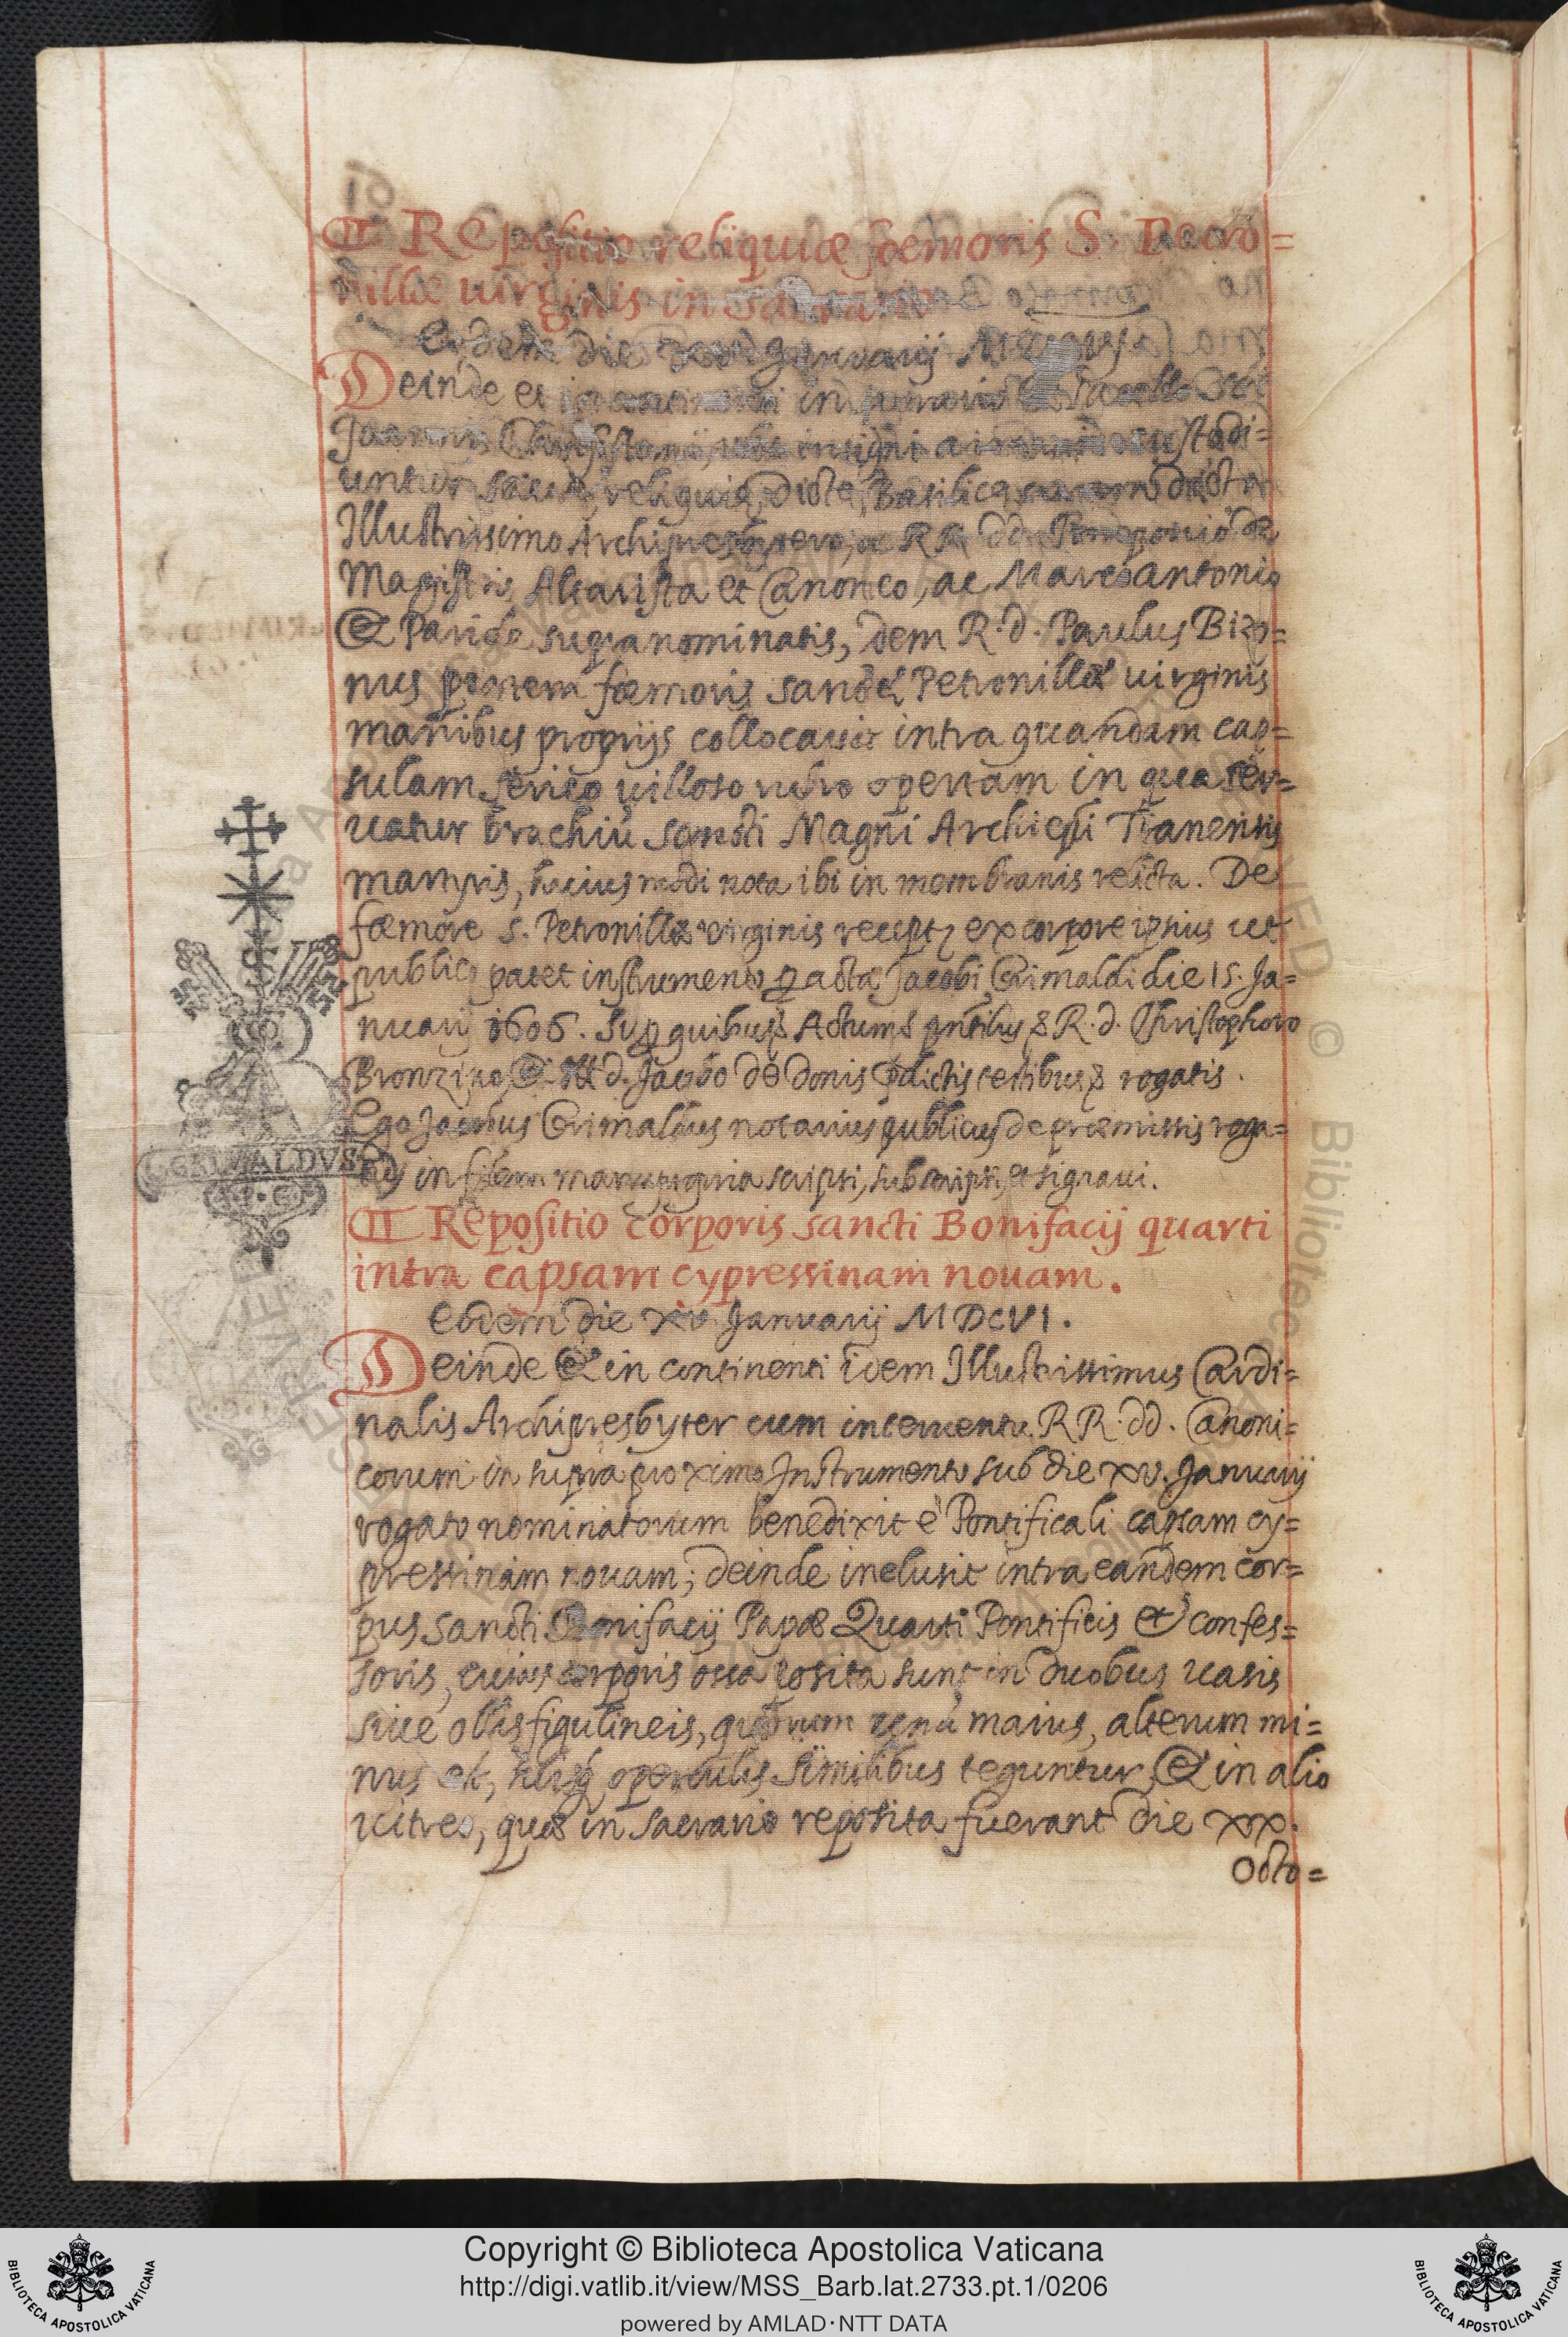 Repositio reliquiæ foemoris S. Petro=
nillæ uirginis in sacrario
Eodem die xv Januarij MDCVI
Deinde et incontinenti in sacello
Joannis Chrysostomi, ubi insigni custodi=
untur sacræ reliquiæ dictæ Basilicæ
Illustrissimo Archipresbytero, ac RR. dd. Pomponio de
Magistris Altarista et Canonico, ac Marco Antonio
& Paride supranominatis, idem R. d. Paulus Bizo=
nus foemoris sanctæ Petronillæ uirginis
manibus proprijs collocauit intra quandam cap=
sulam serico uilloso rubro opertam in qua ser=
uatur brachiũ sancti Magni Archiepi Tranensis
martyris, huiusmodi nota ibi in membranis relicta. De
foemore S. Petronillæ virginis ex corpore ipsius ut
publico patet instrumento acta Jacobi Grimaldi die 15. Ja=
nuarij 1606. Sup quibus Actum pntibus R. d. Christophoro
Bronzino, & d. Jacobo de donis pdictis testibus rogatis.
Ego Jacobus Grimaldus notarius publicus de præmissis roga=
tus in fidem manu propria scripsi, subscripsi, et signaui.
GRIMALDVS
Repositio corporis sancti Bonifacij quarti
intra capsam cypressinam nouam.
Eodem die xv. Januarij MDCVI.
Deinde & in continenti idem Illustrissimus Cardi=
nalis Archipresbyter cum interuentu RR. dd. Canoni=
corum in supra proximo Instrumento sub die xv. Januarij
rogato nominatorum benedixit è Pontificali capsam cy=
pressinam nouam; deinde inclusit intra eandem cor=
pus sancti Bonifacij Papæ Quarti Pontificis et confes=
soris, cuius corporis ossa posita sunt in duobus uasis
siue ollis figulineis, quorum unũ maius, alterum mi=
nus operculis similibus teguntur, & in alio
uitreo, quæ in sacrario reposita fuerant die xx.
Octo=
Copyright © Biblioteca Apostolica Vaticana
http://digi.vatlib.it/view/MSS_Barb.lat.2733.pt.1/0206
powered by AMLAD·NTT DATA
BIBLIOTECA APOSTOLICA VATICANA
BIBLIOTECA APOSTOLICA VATICANA